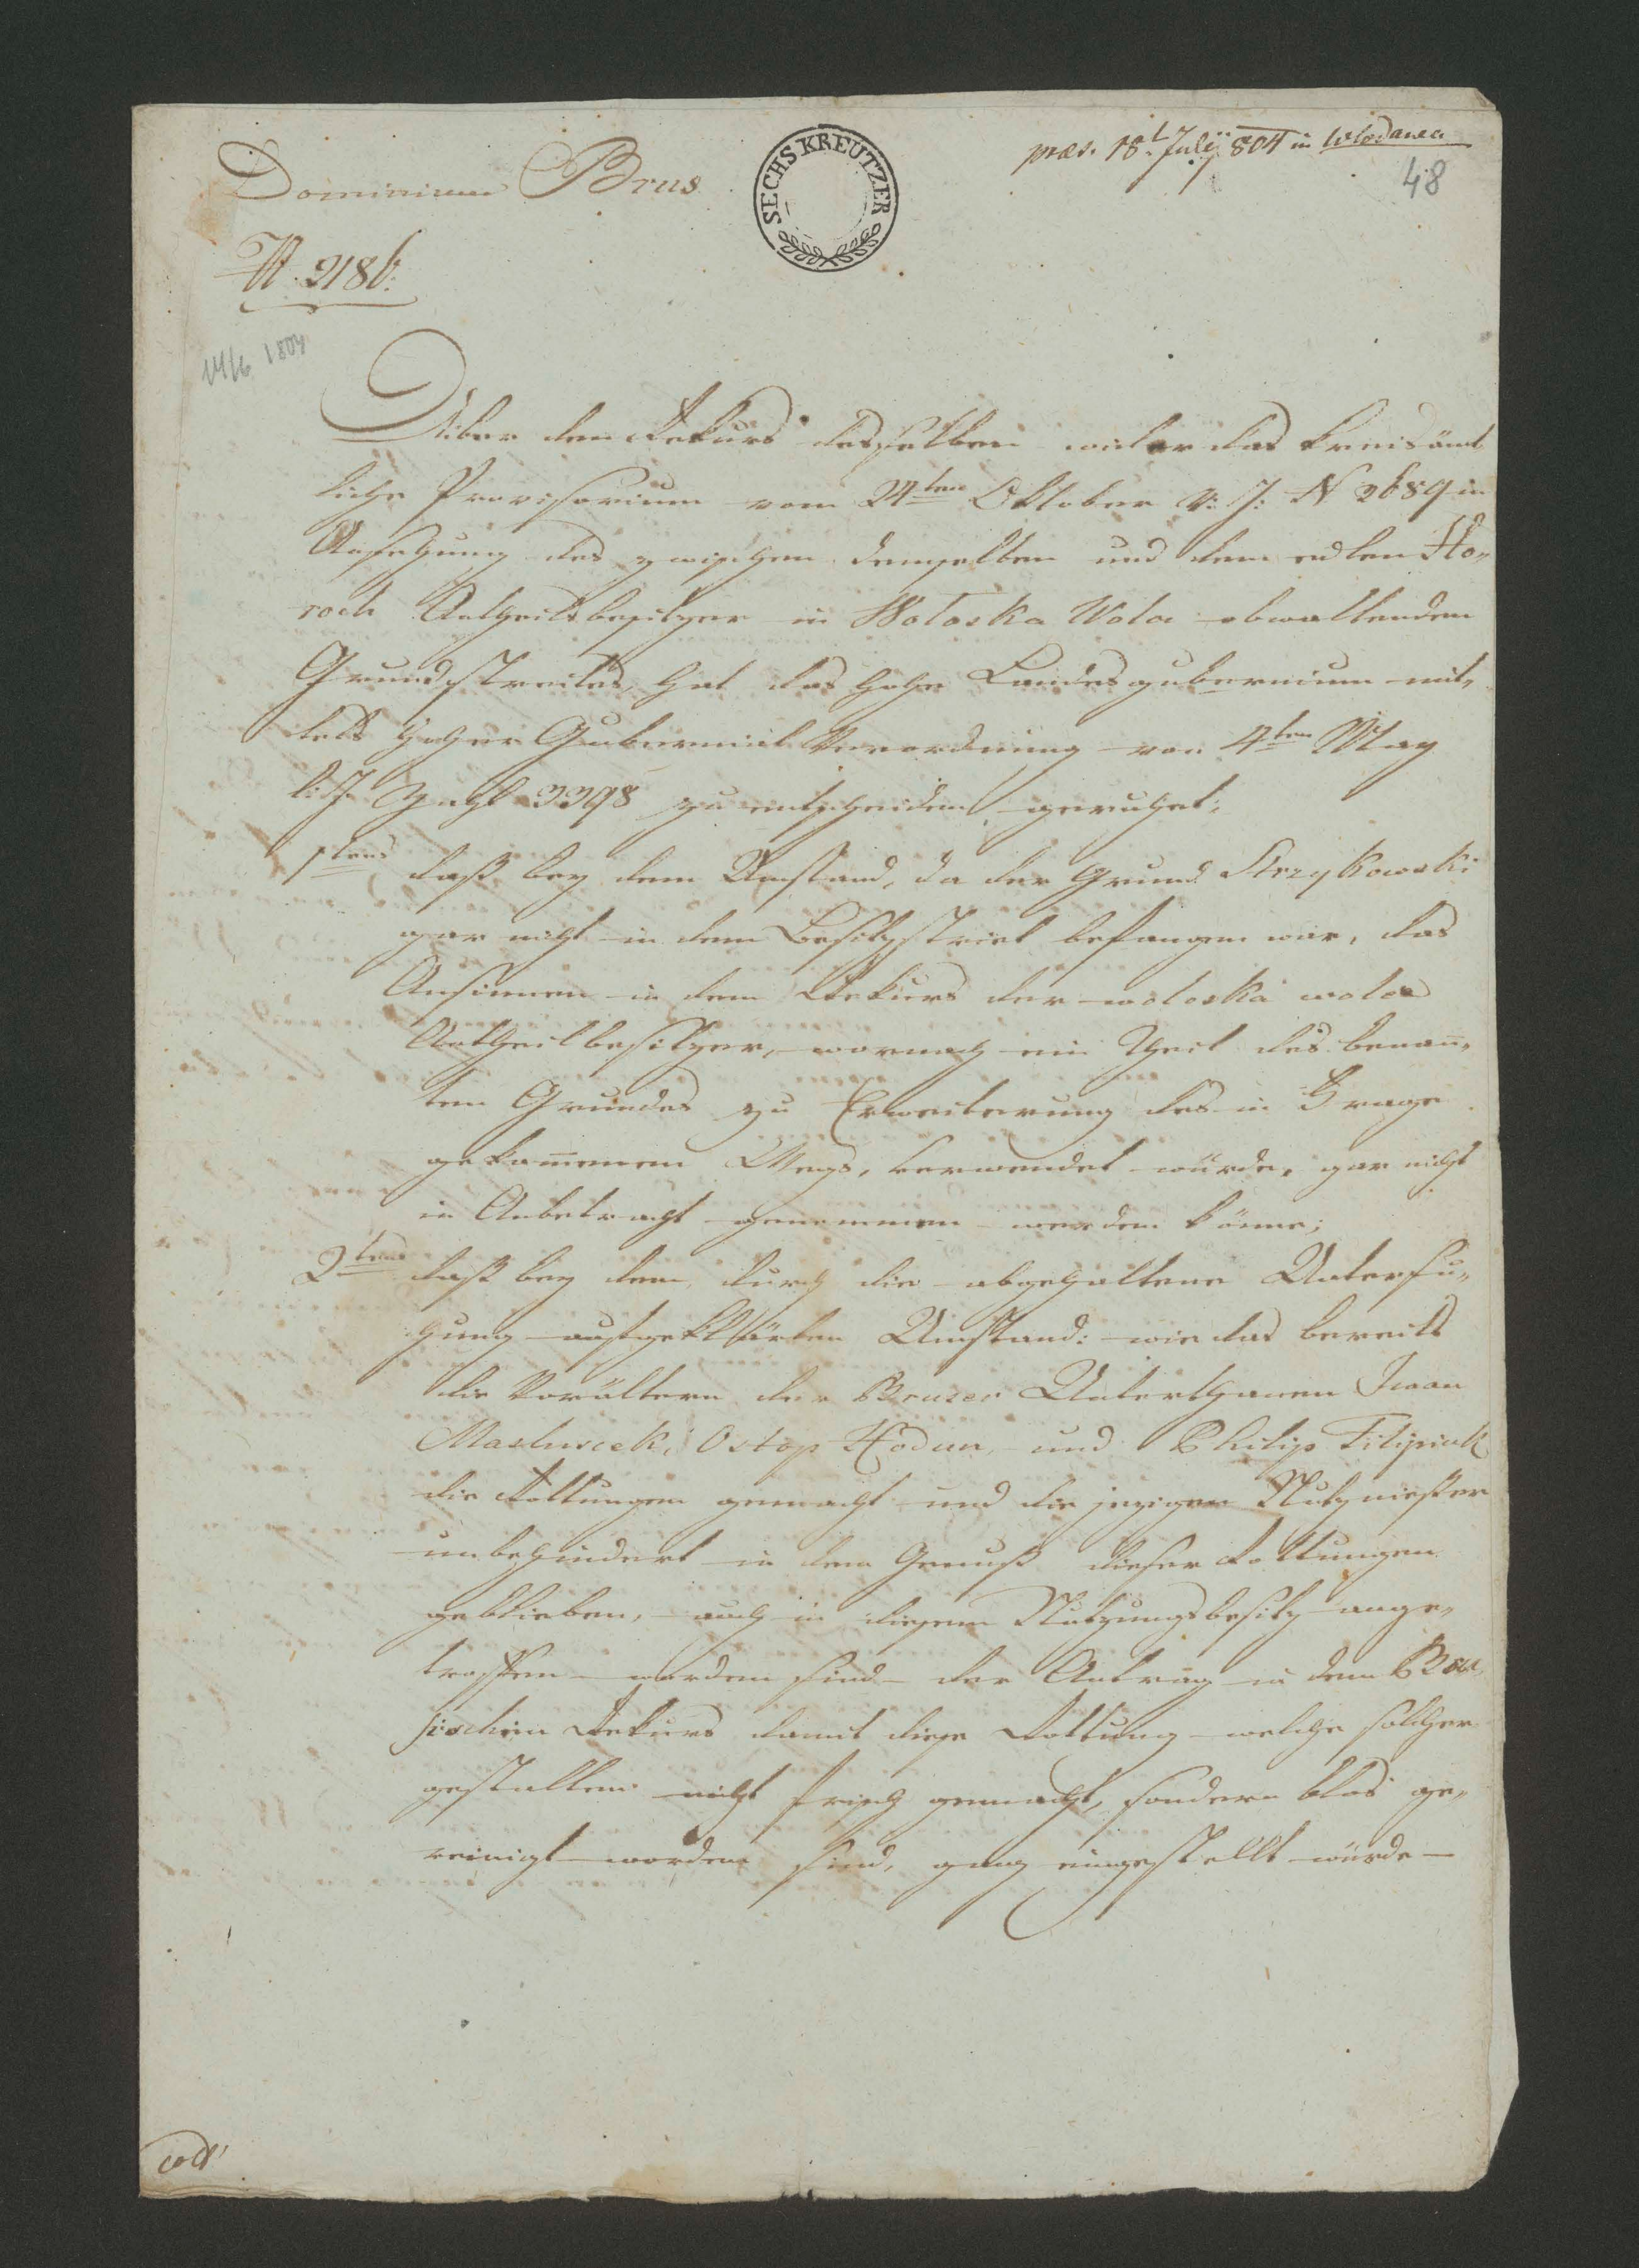 præs. 18t July 804 in Wlodawa
48
Dominium Brus
SECHS KREUTZER
N. 2186.
14/6 1804
Über den Rekurs desselben wider das kreisämt
liche Provisorium vom 24ten Oktober v: J: N 2659 in
Ansehung des zwischen demselben und dem edlen Ho„
roch Antheilsbesitzer in Woloska Wola obwaltenden
Grundstreites, hat das hohe Landesgubernium mit„
tels hoher Gubernial Verordnung von 4ten May
l: J. Zahl 3398 zu entscheiden geruhet:
1tens daß bey dem Umstand, da der Grund Strzykowski
gar nicht in dem Besitzstreit befangen war, das
Ansinnen in dem Rekurs der woloska wola
Antheilbesitzer, wornach ein Theil des benan̅„
ten Grundes zu Erweiterung des in Frage
gekom̅enen Wegs, verwendet würde, gar nicht
in Anbetracht genommen werden könne;
2tens daß bey dem, durch die abgehaltene Untersu„
chung aufgeklärten Umstand: wie das bereits
die Vorältern der Bruser Unterthanen Iwan
Ostop Hodun, und Philip Filipiuk
die Rottungen gemacht und die jezigen Nutznießer
unbehindert in dem Genuß dieser Rottungen
geblieben, auch in diesem Nutzungsbesitz ange„
troffen worden sind der Antrag in dem Bru„
sischen Rekurs damit diese Rottung welche solcher
gestalten nicht frisch gemacht, sondern blos ge„
reinigt worden sind, ganz eingestellt würde